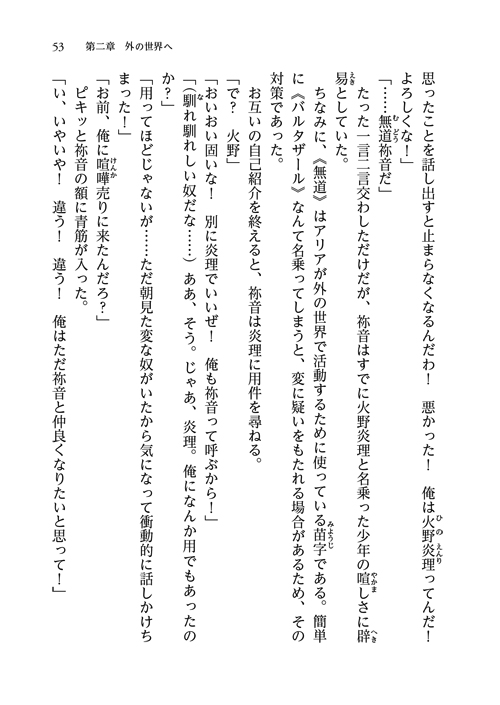 53　第二章　外の世界へ
思ったことを話し出すと止まらなくなるんだわ！　悪かった！　俺は火野炎理ってんだ！
よろしくな！」
「……無道祢音だ」
たった一言二言交わしただけだが、祢音はすでに火野炎理と名乗った少年の喧しさに辟
易としていた。
ちなみに、《無道》はアリアが外の世界で活動するために使っている苗字である。簡単
に《バルタザール》なんて名乗ってしまうと、変に疑いをもたれる場合があるため、その
対策であった。
お互いの自己紹介を終えると、祢音は炎理に用件を尋ねる。
「で？　火野」
「おいおい固いな！　別に炎理でいいぜ！　俺も祢音って呼ぶから！」
「（馴れ馴れしい奴だな……）ああ、そう。じゃあ、炎理。俺になんか用でもあったの
か？」
「用ってほどじゃないが……ただ朝見た変な奴がいたから気になって衝動的に話しかけち
まった！」
「お前、俺に喧嘩売りに来たんだろ？」
ピキッと祢音の額に青筋が入った。
「い、いやいや！　違う！　違う！　俺はただ祢音と仲良くなりたいと思って！」